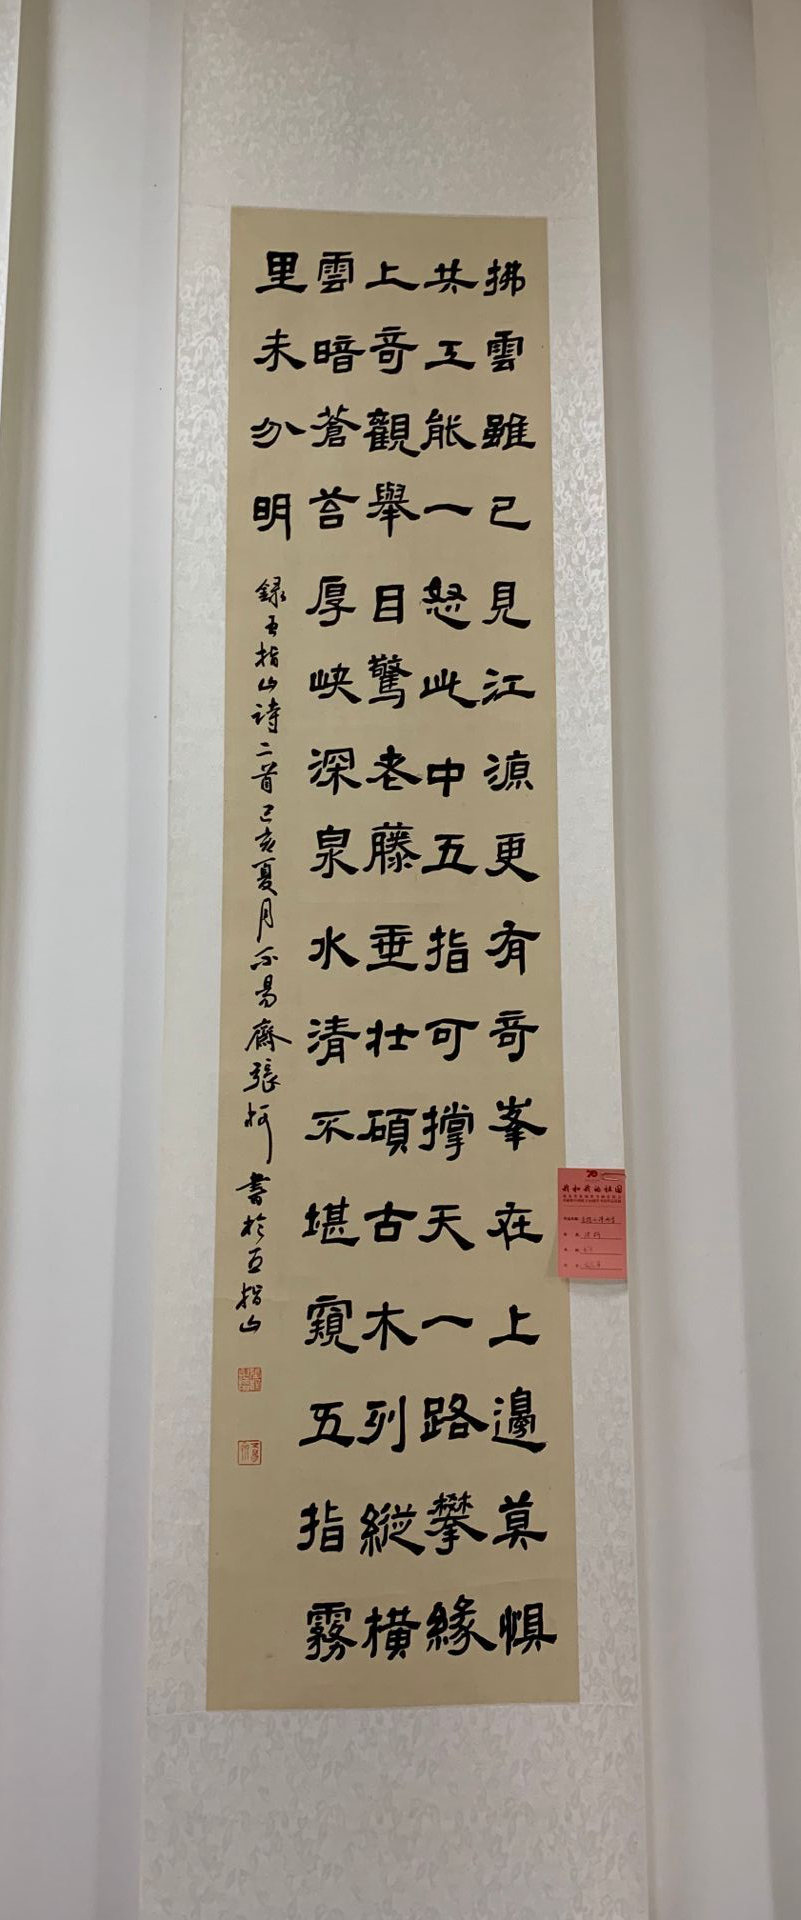 拂雲雖已見江源更有奇峯在上邊莫惧
共工能一怒此中五指可撐天一路攀緣
上奇觀舉目驚老藤垂壯碩古木列縱橫
雲暗蒼苔厚峽深泉水清不堪窺五指霧
里未分明
録五指山詩二首己亥夏月不易齋張柯書於五指山
70
我和我的祖国